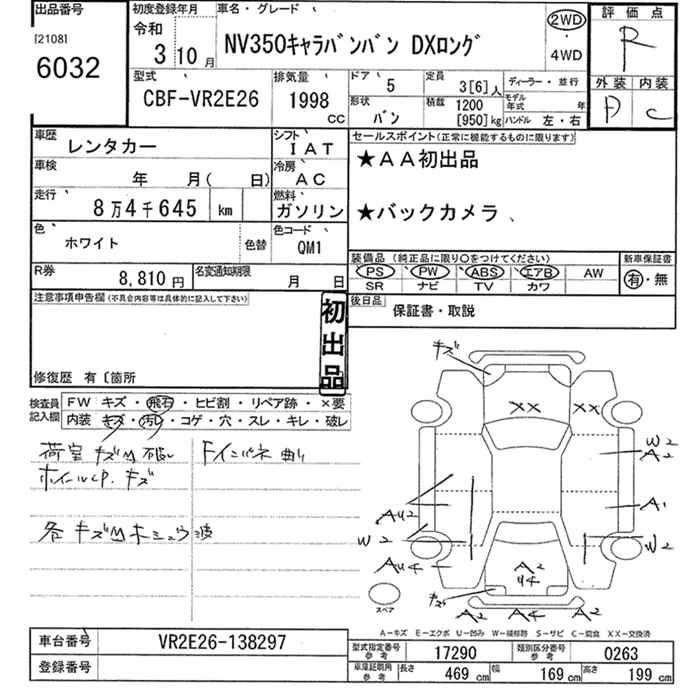 出品番号 初度登録年月 車名・グレード 評価点
[2108] 令和 2WD R
6032 3 10月 NV350キャラバンバン DXロング ・4WD
型式 排気量 ドア 5 定員 3[6]人 ディーラー・並行 外装 内装
CBF-VR2E26 1998 CC 形状 バン 積載 1200 [950]kg モデル年式 年 ハンドル 左・右 D C
車歴 レンタカー シフト IAT セールスポイント(正常に機能するものに限ります)
車検 年 月( 日) 冷房 AC ★AA初出品
走行 8万4千645 km 燃料 ガソリン ★バックカメラ
色 ホワイト 色替 色コード QM1
装備品 (純正品に限り○をつけてください) 新車保証書
PS・PW・ABS・エアB・AW 有・無
SR ナビ TV カワ
R券 8,810円 名変通知期限 月 日
後日品 保証書・取説
注意事項申告欄(不具合内容等は具体的に記入して下さい)
初出品
修復歴 有〔箇所
検査員記入欄 FW キズ・飛石・ヒビ割・リペア跡・×要
内装 キズ・汚レ・コゲ・穴・スレ・キレ・破レ
荷室 キズM Fインパネ 曲り
ホイールCP. キズ
各 キズM ホシュウ
キズ
XX XX
W2
A2
AU2 A1
W2 W2
AU4 A2
U4
キズ A2 A4 A2
スペア
A-キズ E-エクボ U-凹み W-補修跡 S-サビ C-腐食 XX-交換済
車台番号 VR2E26-138297 型式指定番号 参考 17290 類別区分番号 参考 0263
登録番号 車庫証明用 参考 長さ 469cm 幅 169cm 高さ 199cm